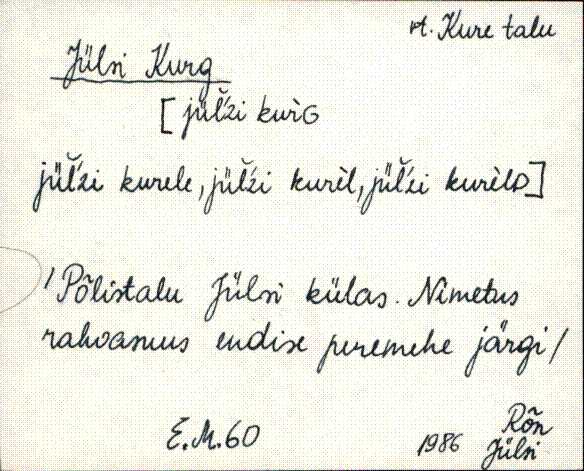 vt. Kure talu
Jülsi Kurg
[jüĺ̆źi kuŕG
jüĺ̆źi kurele, jüĺ̆źi kurèl, jüĺ̆źi kurèlD]
/Põlistalu Jülsi külas. Nimetus
rahvasuus endise peremehe järgi/
E.M.60
1986 Rõn
Jülsi